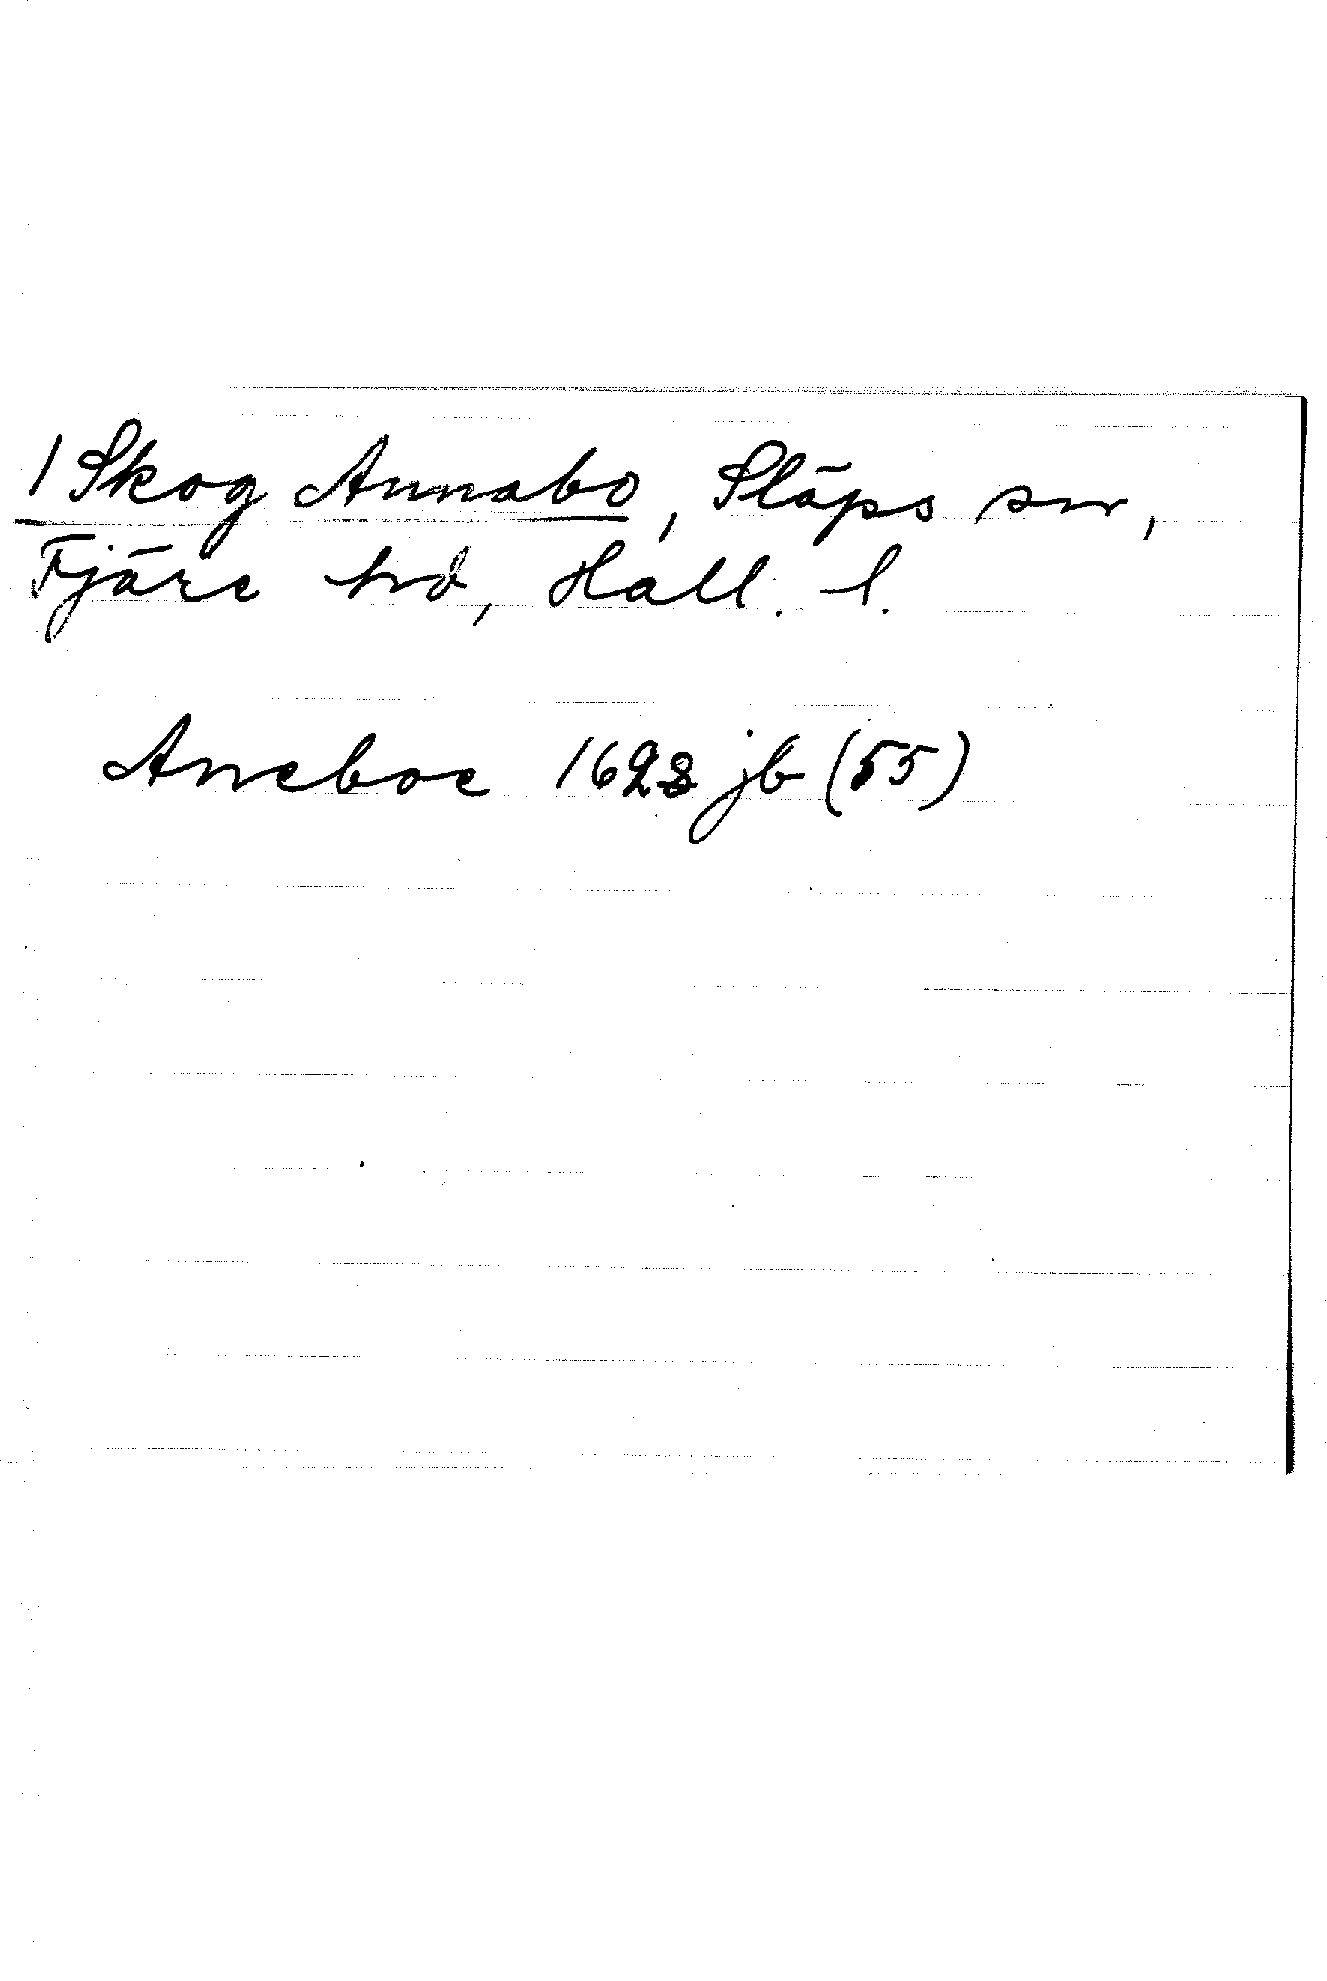 1 Skog Annabo, Släps sn,
Fjäre hd, Hall. l.
Aneboe 1628 jb (55)